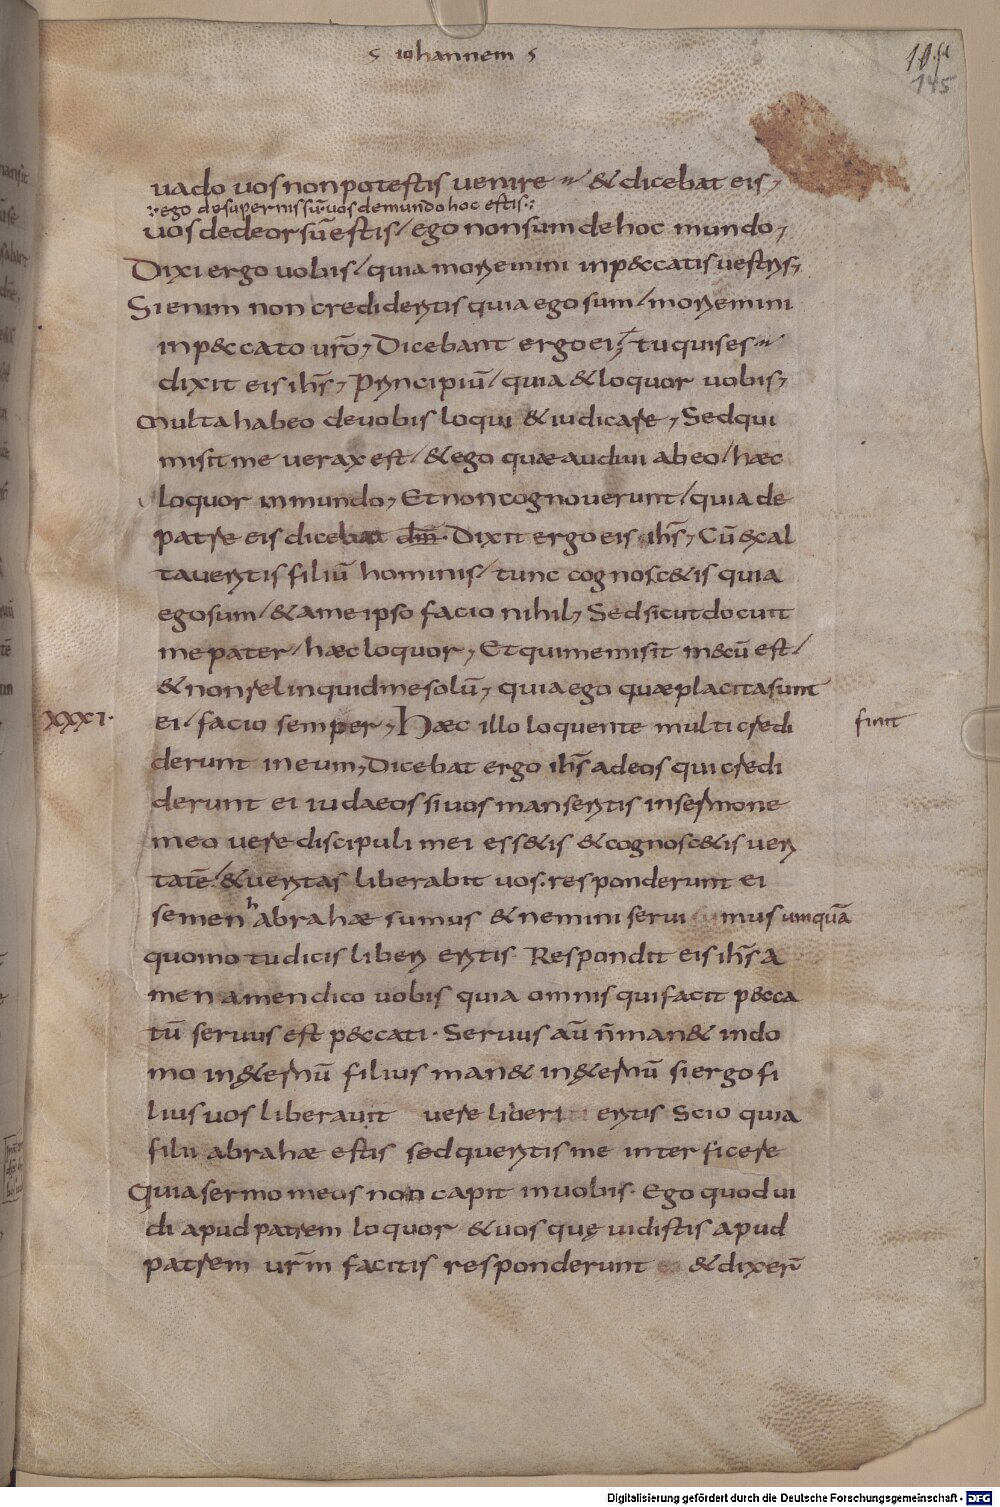 iohannem
145
uado uos non potestis uenire & dicebat eis,
ego desupernis sū uos demundo hoc estis
uos dedeorsū estis / ego non sum de hoc mundo,
Dixi ergo uobis / quia moriemini in p&ccatis uestris,
Si enim non credideritis quia ego sum / moriemini
in p&ccato uro, Dicebant ergo ei, tu quis es
dixit eis ihs, Principiū / quia & loquor uobis,
Multa habeo de uobis loqui & iudicare, Sed qui
misit me uerax est / & ego quae audiui ab eo / haec
loquor in mundo, Et non cognouerunt / quia de
patre eis dicebat dm. Dixit ergo eis ihs, Cū &xal
taueritis filiū hominis / tunc cognosc&is quia
ego sum / & a me ipso facio nihil, Sed sicut docuit
me pater / haec loquor, Et qui me misit mecū est /
& non relinquid me solū, quia ego quae placita sunt
XXXI.
ei. facio semper, Haec illo loquente multi credi
fiunt
derunt in eum, Dicebat ergo ihs ad eos qui credi
derunt ei iudaeos si uos manseritis in sermone
meo uere discipuli mei ess&is & cognosc&is ueri
tatē / & ueritas liberabit uos. responderunt ei
semen habrahae sumus & nemini serui mus umquā
quomo tu dicis liberi eritis. Respondit eis ihs a
men amen dico uobis quia omnis qui facit p&cca
tū seruus est p&ccati. Seruus aū n man& in do
mo in &ernū filius man& in &ernū si ergo fi
lius uos liberauit uere liberi eritis Scio quia
filii abrahae estis sed queritis me interficere
Quia sermo meus non capit in uobis. Ego quod ui
di apud patrem loquor & uos quę uidistis apud
patrem urm facitis responderunt & dixer
Digitalisierung gefördert durch die Deutsche Forschungsgemeinschaft - DFG